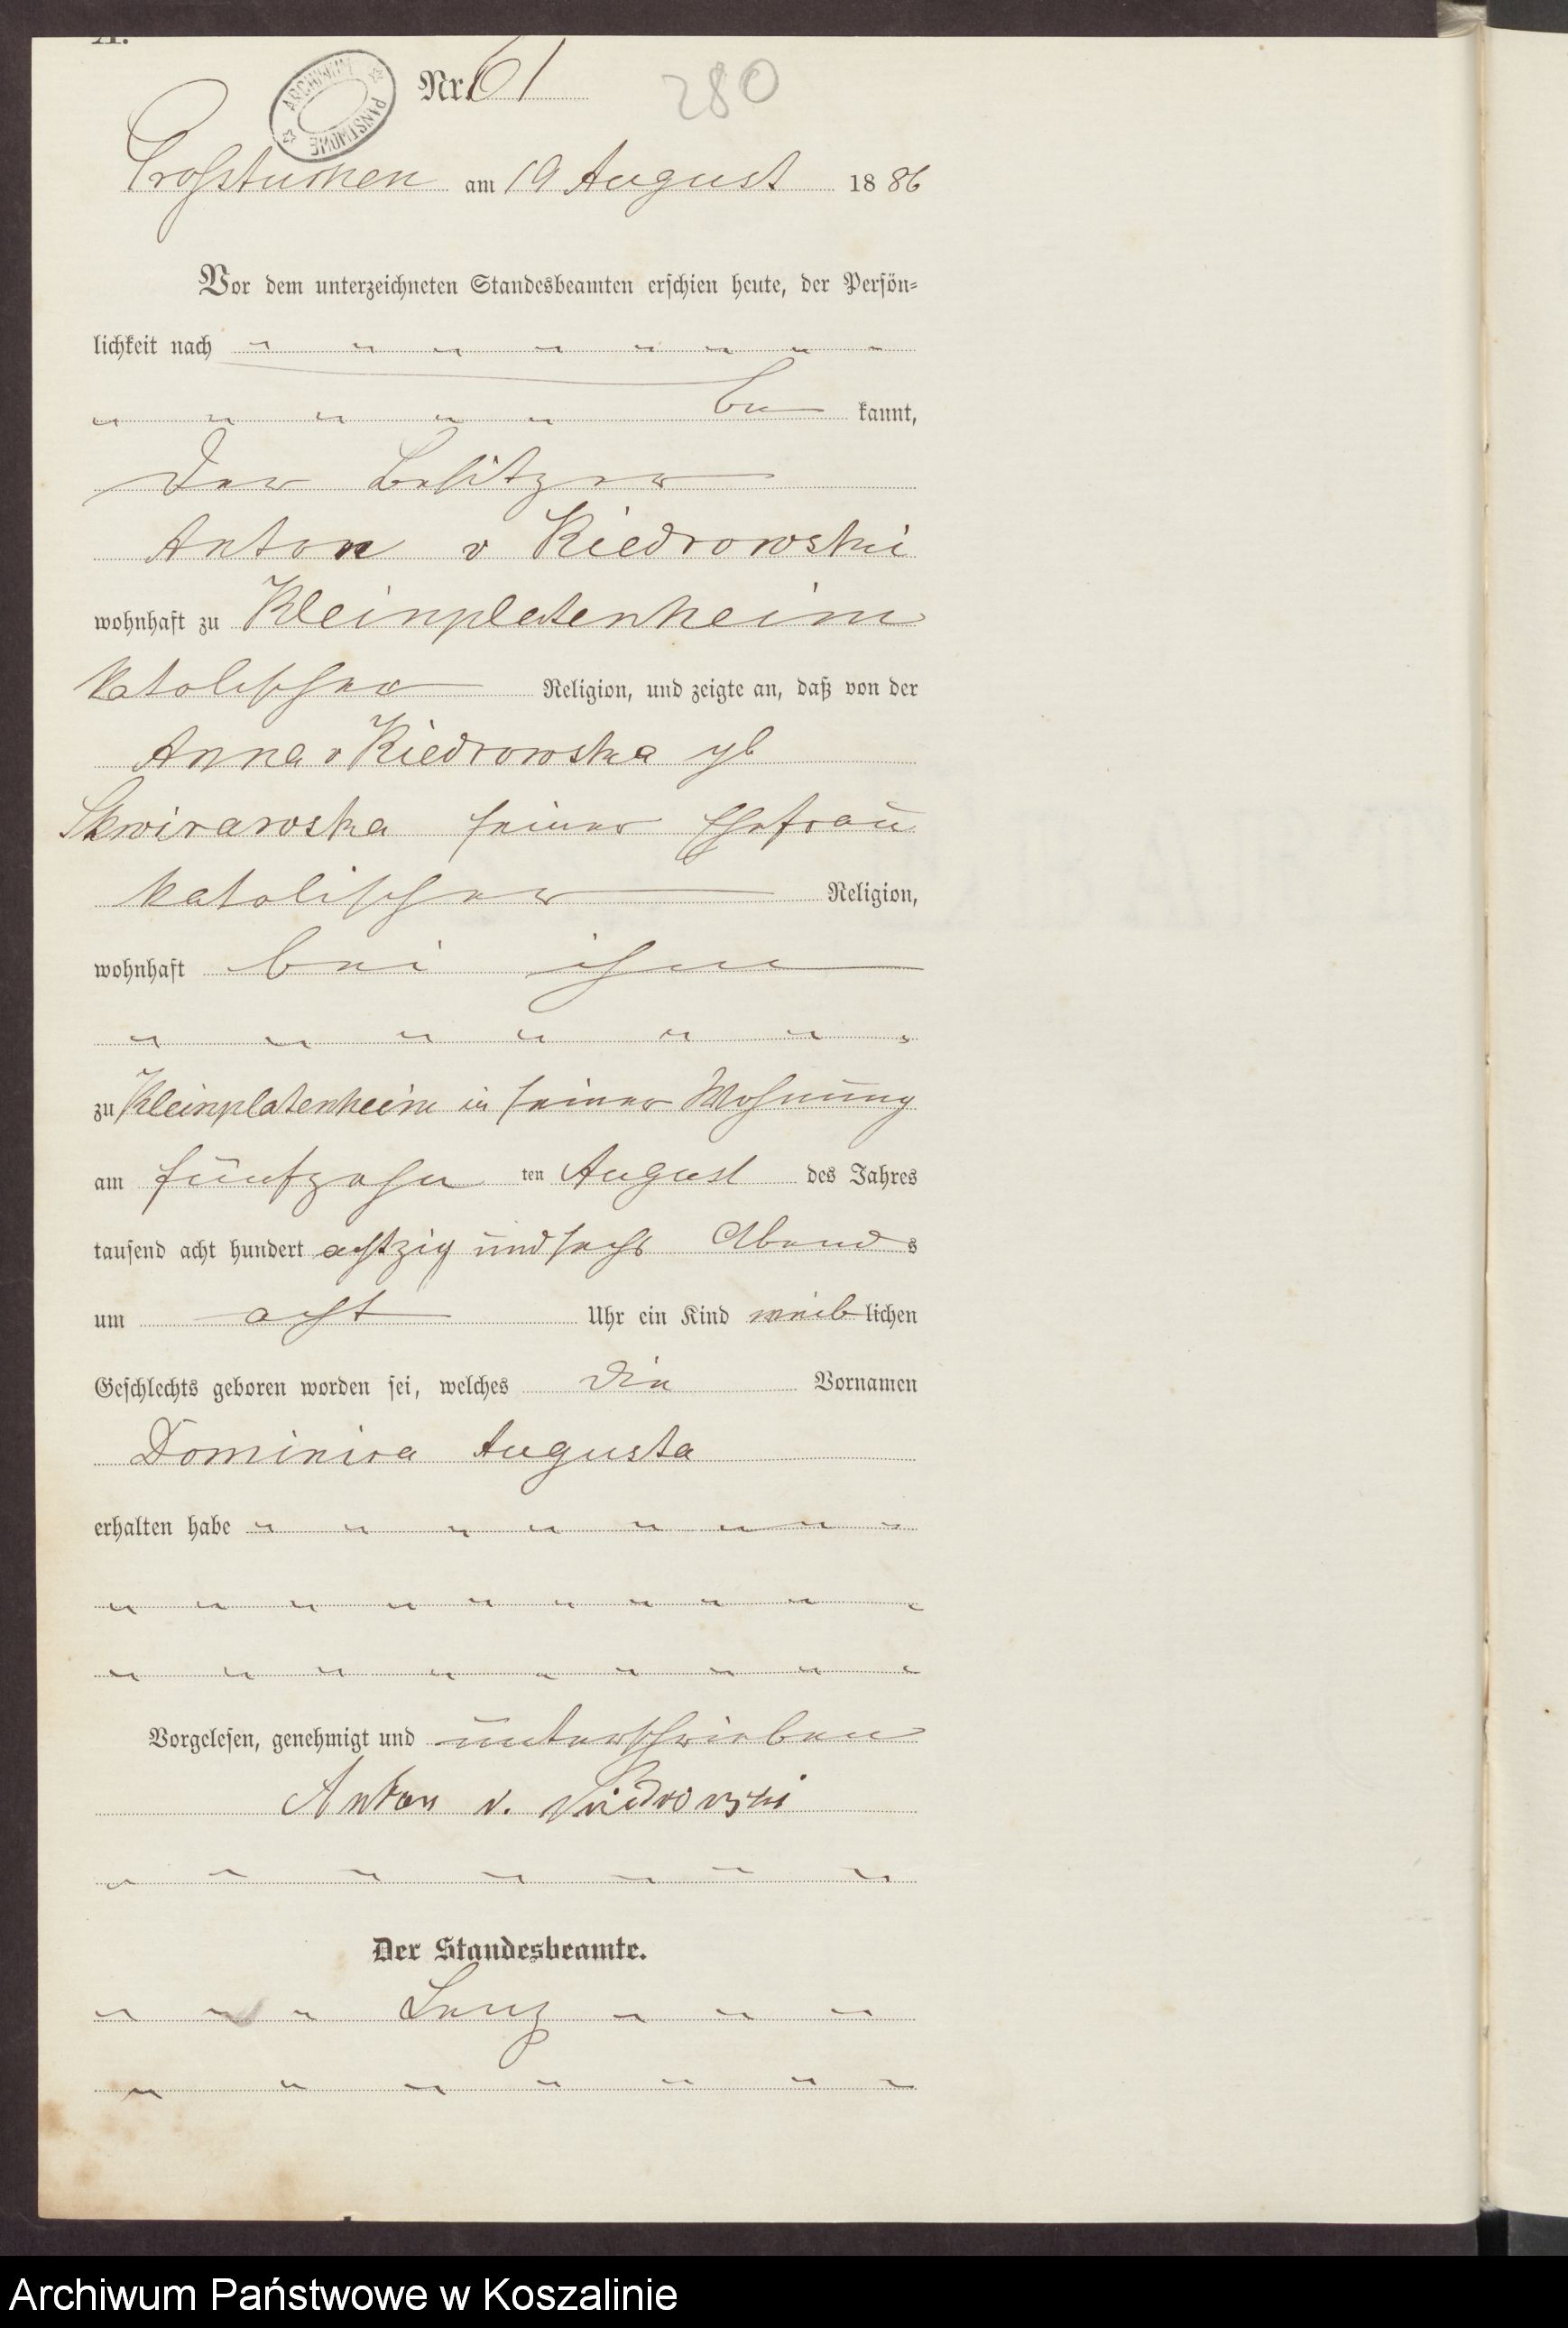 A.
ARCHIWUM PAŃSTWOWE
Nr. 61
280
Großtuchen am 19 August 1886
Vor dem unterzeichneten Standesbeamten erschien heute, der Persön-
lichkeit nach
be kannt,
der Besitzer
Anton v Kiedrowski
wohnhaft zu Kleinplatenheim
katolischer Religion, und zeigte an, daß von der
Anna v Kiedrowska gb
Skwirawska seiner Ehefrau
katolischer Religion,
wohnhaft bei ihm
zu Kleinplatenheim in seiner Wohnung
am fünfzehn ten August des Jahres
tausend acht hundert achtzig und sechs Abends
um acht Uhr ein Kind weiblichen
Geschlechts geboren worden sei, welches die Vornamen
Dominica Augusta
erhalten habe
Vorgelesen, genehmigt und unterschrieben
Anton v. Kiedrowski
Der Standesbeamte.
Archiwum Państwowe w Koszalinie